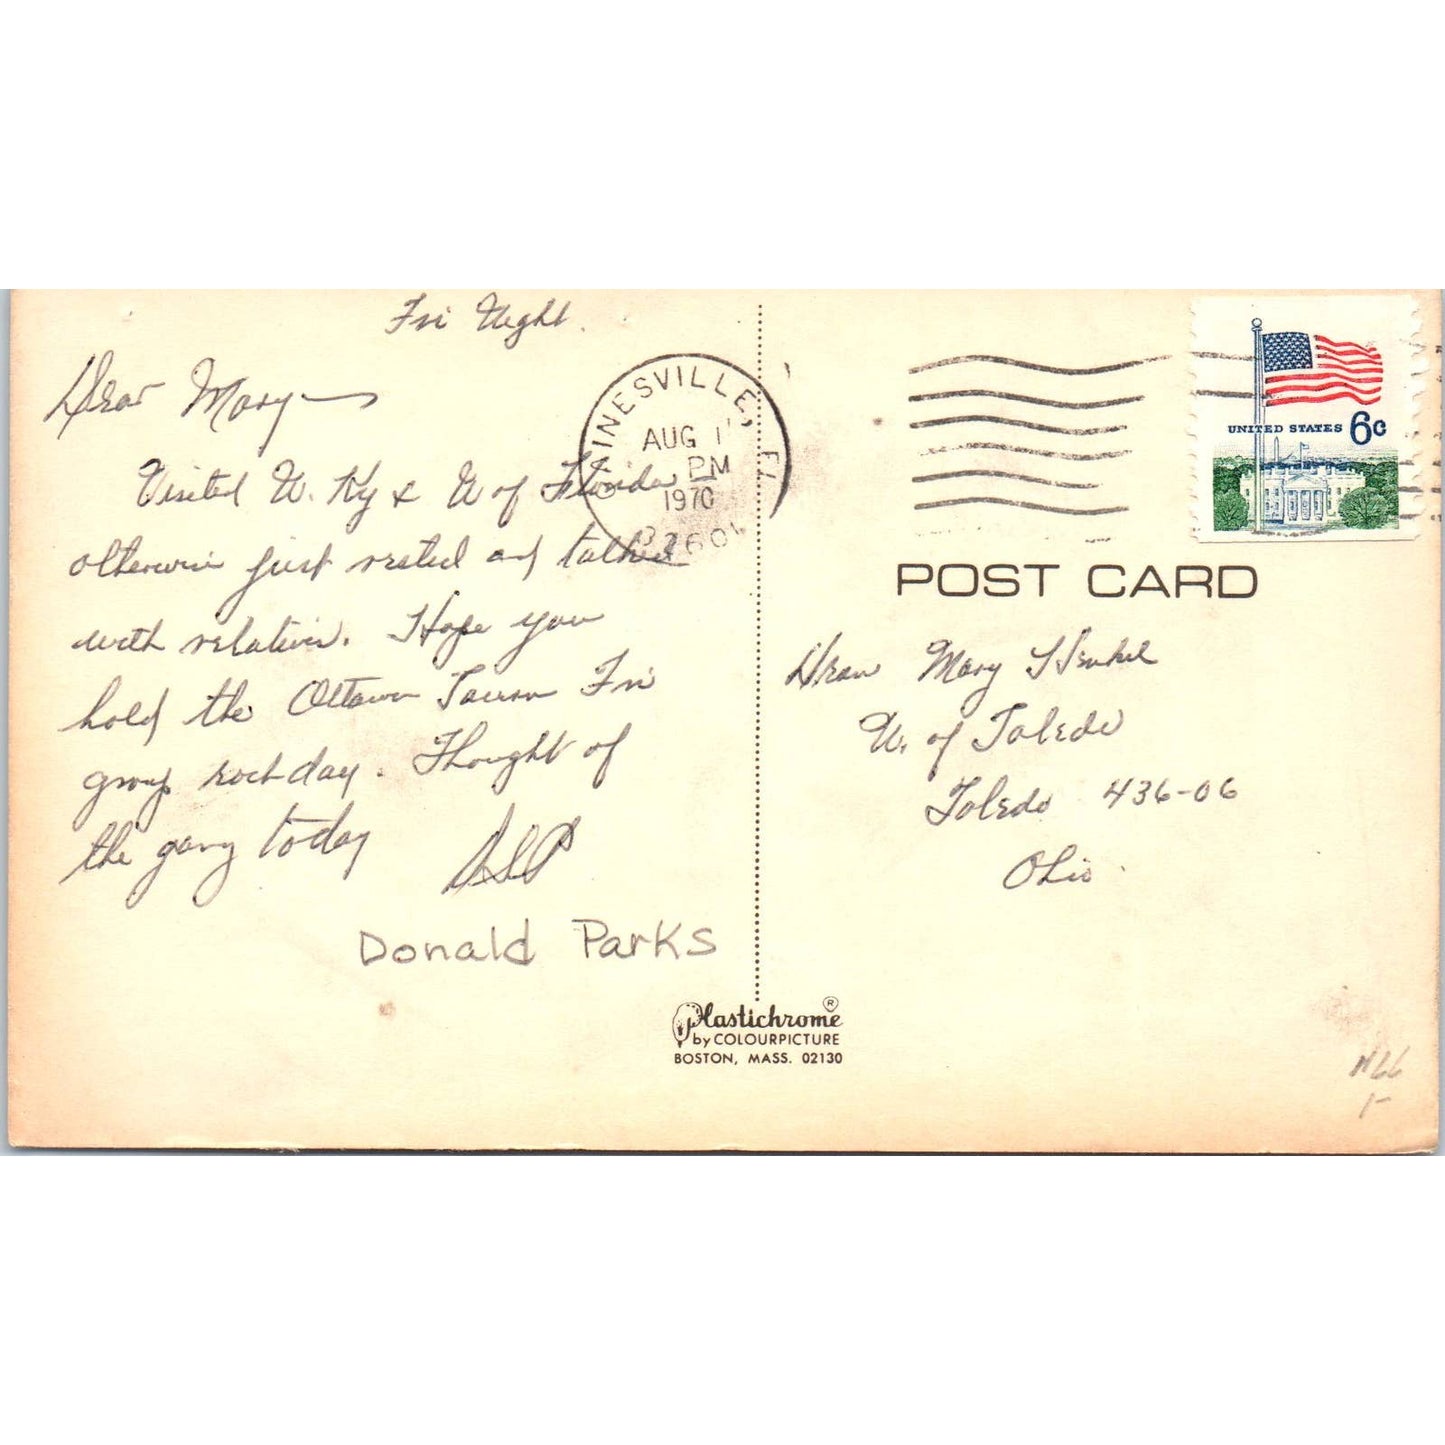 Fri Night.
Dear Mary
Visited W. Ky & U of Florida
otherwise just rested and talked
with relatives. Hope you
hold the Ottawa Tavern Fri
group each day. Thought of
the gang today
DSP
Donald Parks
GAINESVILLE, FL
AUG 1
PM
1970
32601
UNITED STATES 6c
POST CARD
Dean Mary Henkel
U. of Toledo
Toledo 436-06
Ohio
Plastichrome ®
by COLOURPICTURE
BOSTON, MASS. 02130
N66
1-